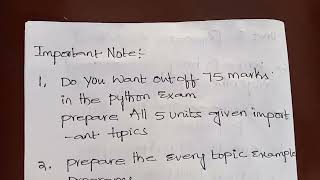 Important Note:-
1. Do you want out off 75 marks
in the python Exam
prepare All 5 units given import
-ant topics
2. prepare the every topic Example
programs